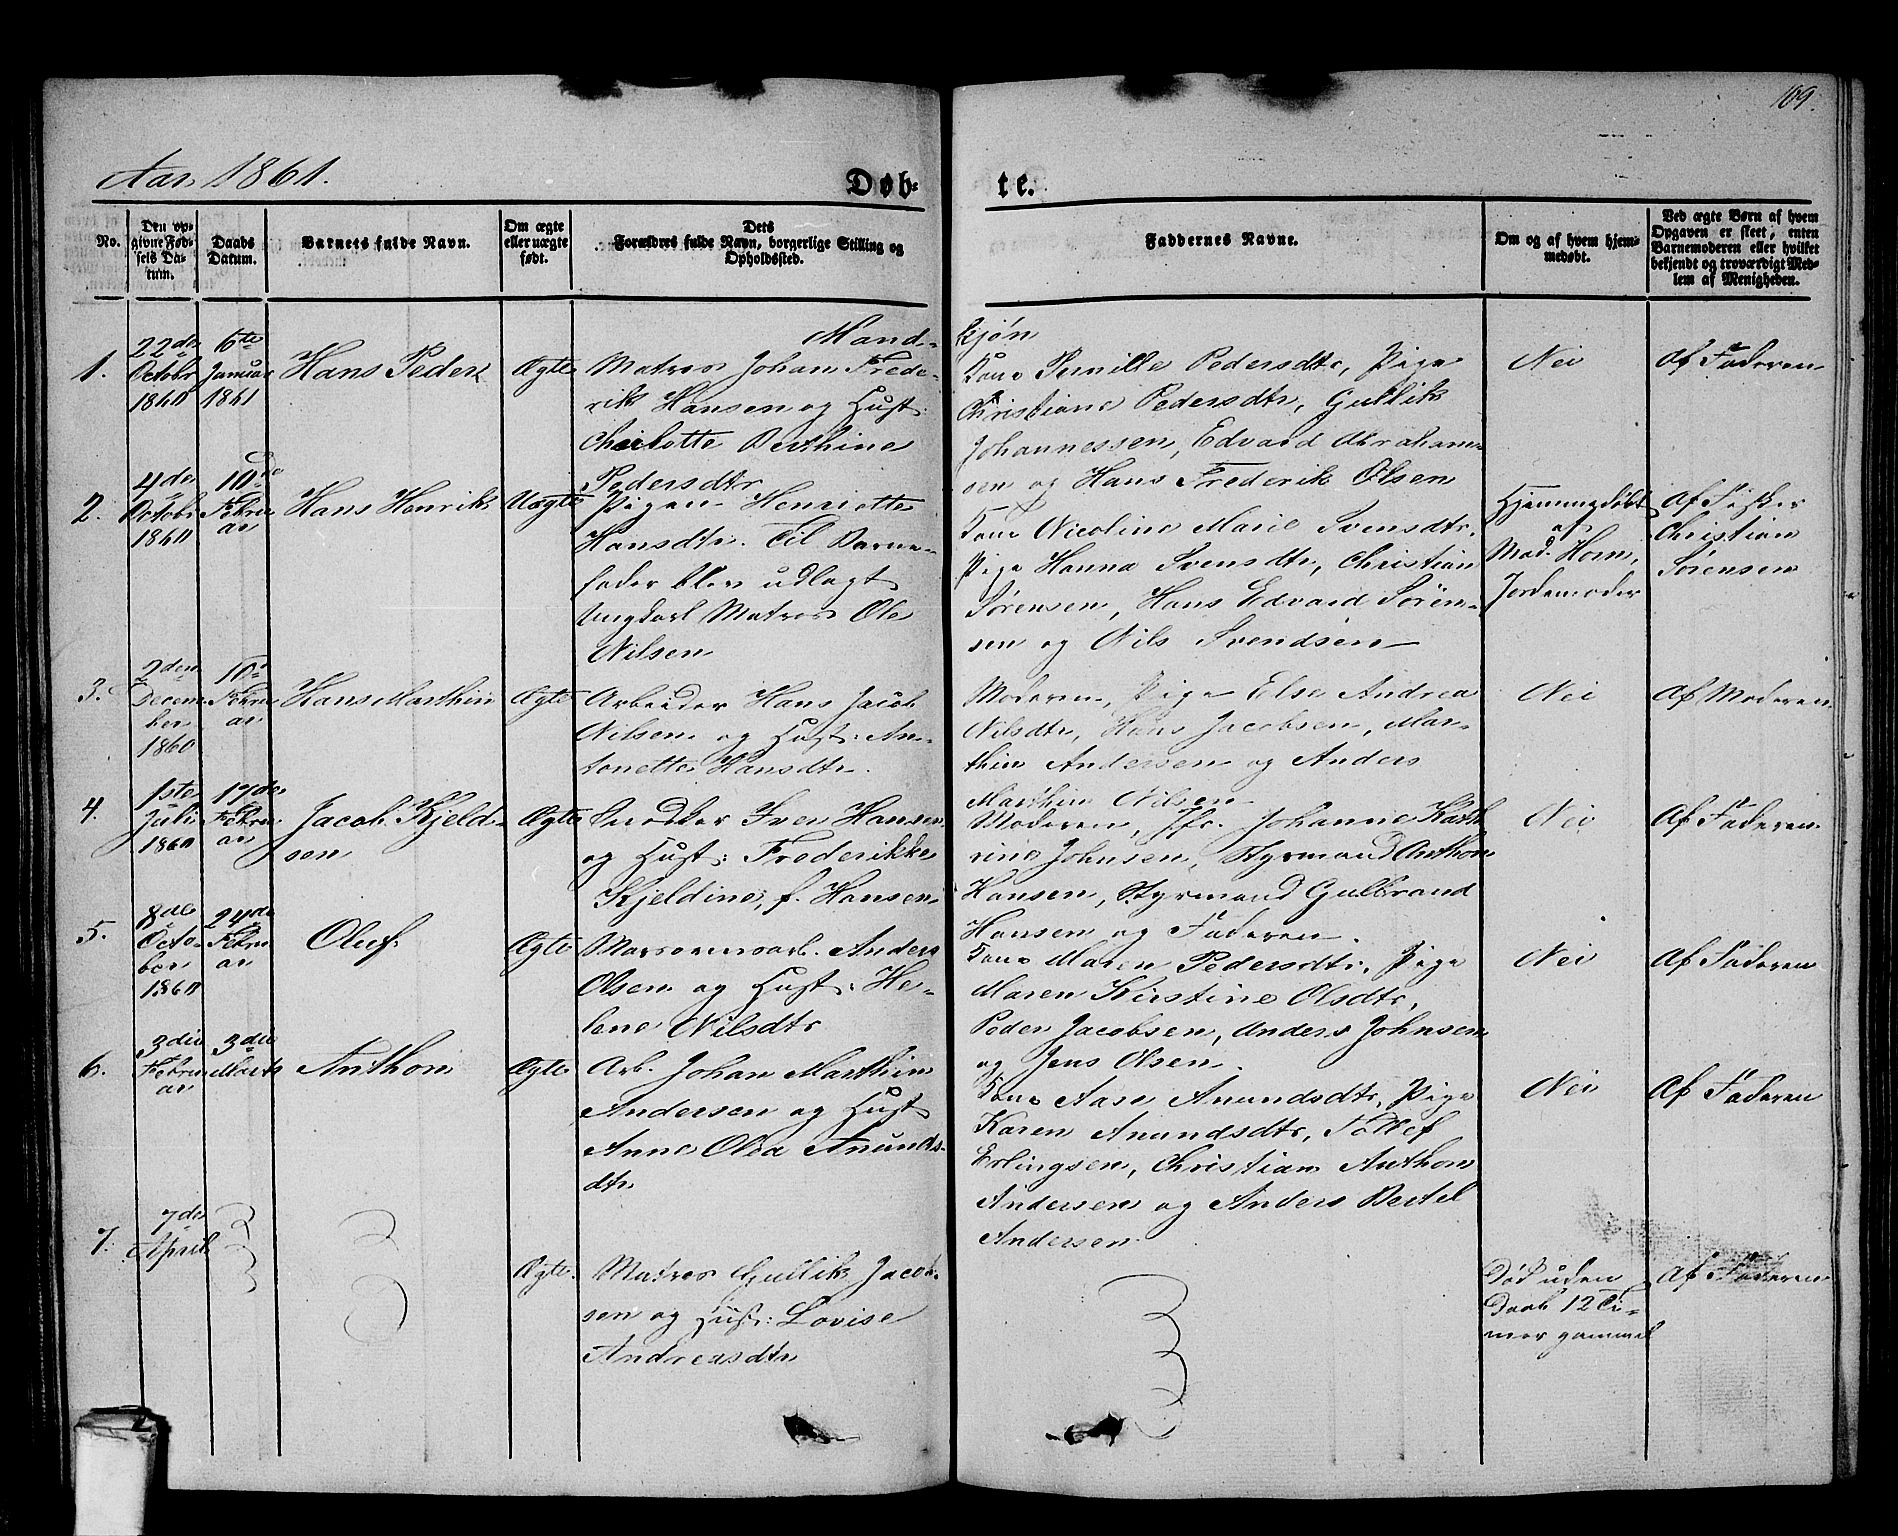 109.
Aar 1861.
Døb-
te.
No.
Den op-
givne Fød-
sels Da-
tum.
Daabs
Datum.
Barnets fulde Navn.
Om ægte
eller uægte
født.
Dets
Forældres fulde Navn, borgerlige Stilling og
Opholdssted.
Faddernes Navne.
Om og af hvem hjem-
medøbt.
Ved ægte Børn af hvem
Opgaven er skeet, enten
Barnemoderen eller hvilket
bekjendt og troværdigt Med-
lem af Menigheden.
Mand-
kjøn
1.
22de
Octobr
1860
6te
Januar
1861
Hans Peder
Ægte
Matros Johan Frede-
rik Hansen og Hust:
Charlotte Berthine
Pedersdtr
Kone Pernille Pedersdtr, Pige
Christiane Pedersdtr, Gullik
Johannessen, Edvard Abraham-
sen og Hans Frederik Olsen
Nei
Af Faderen
2.
4de
Octobr
1860
10de
Februar
Hans Henrik
Uægte
Pigen Henriette
Hansdtr. Til Barne-
fader blev udlagt
Ungkarl Matros Ole
Nilsen
Kone Nicoline Marie Svensdtr,
Pige Hanna Svensdtr, Christian
Sørensen, Hans Edvard Søren-
sen og Nils Svendsen
Hjemmedøbt
af
Mad. Horn,
Jordemoder
Af Fisker
Christian
Sørensen
3.
2den
Decem-
ber
1860
10de
Februar
Hans Marthin
Ægte
Arbeider Hans Jacob
Nilsen og Hust: An-
tonette Hansdtr.
Moderen, Pige Else Andrea
Nilsdtr, Hans Jacobsen, Mar-
thin Andersen og Anders
Marthin Nilsen
Nei
Af Moderen
4.
1ste
Juli
1860
17de
Februar
Jacob Kjeld-
sen
Ægte
Snedker Sven Hansen
og Hust: Frederikke
Kjeldine, f. Hansen
Moderen, Jfr. Johanne Kath-
rine Johnsen, Styrmand Anthon
Hansen, Styrmand Gulbrand
Hansen og Faderen.
Nei
Af Faderen
5.
8de
Octo-
ber
1860
24de
Februar
Oluf
Ægte
Anders
Olsen og Hust: He-
lene Nilsdtr
Kone Maren Pedersdtr, Pige
Maren Kirstine Olsdtr,
Peder Jacobsen, Anders Johnsen
og Jens Olsen.
Nei
Af Faderen
6.
3die
Februar
3die
Marts
Anthon
Ægte
Arb. Johan Marthin
Andersen og Hust
Anne Olea Anunds-
dtr
Kone Aase Anundsdtr, Pige
Karen Anundsdtr, Tollef
Erlingsen, Christian Anthon
Andersen og Anders Bertel
Andersen
Nei
Af Faderen
7.
7de
April
Ægte.
Matros Gullik Jacob-
sen og Hust: Lovise
Andreasdtr
Død uden
Daab 12 Ti-
mer gammel
Af Faderen